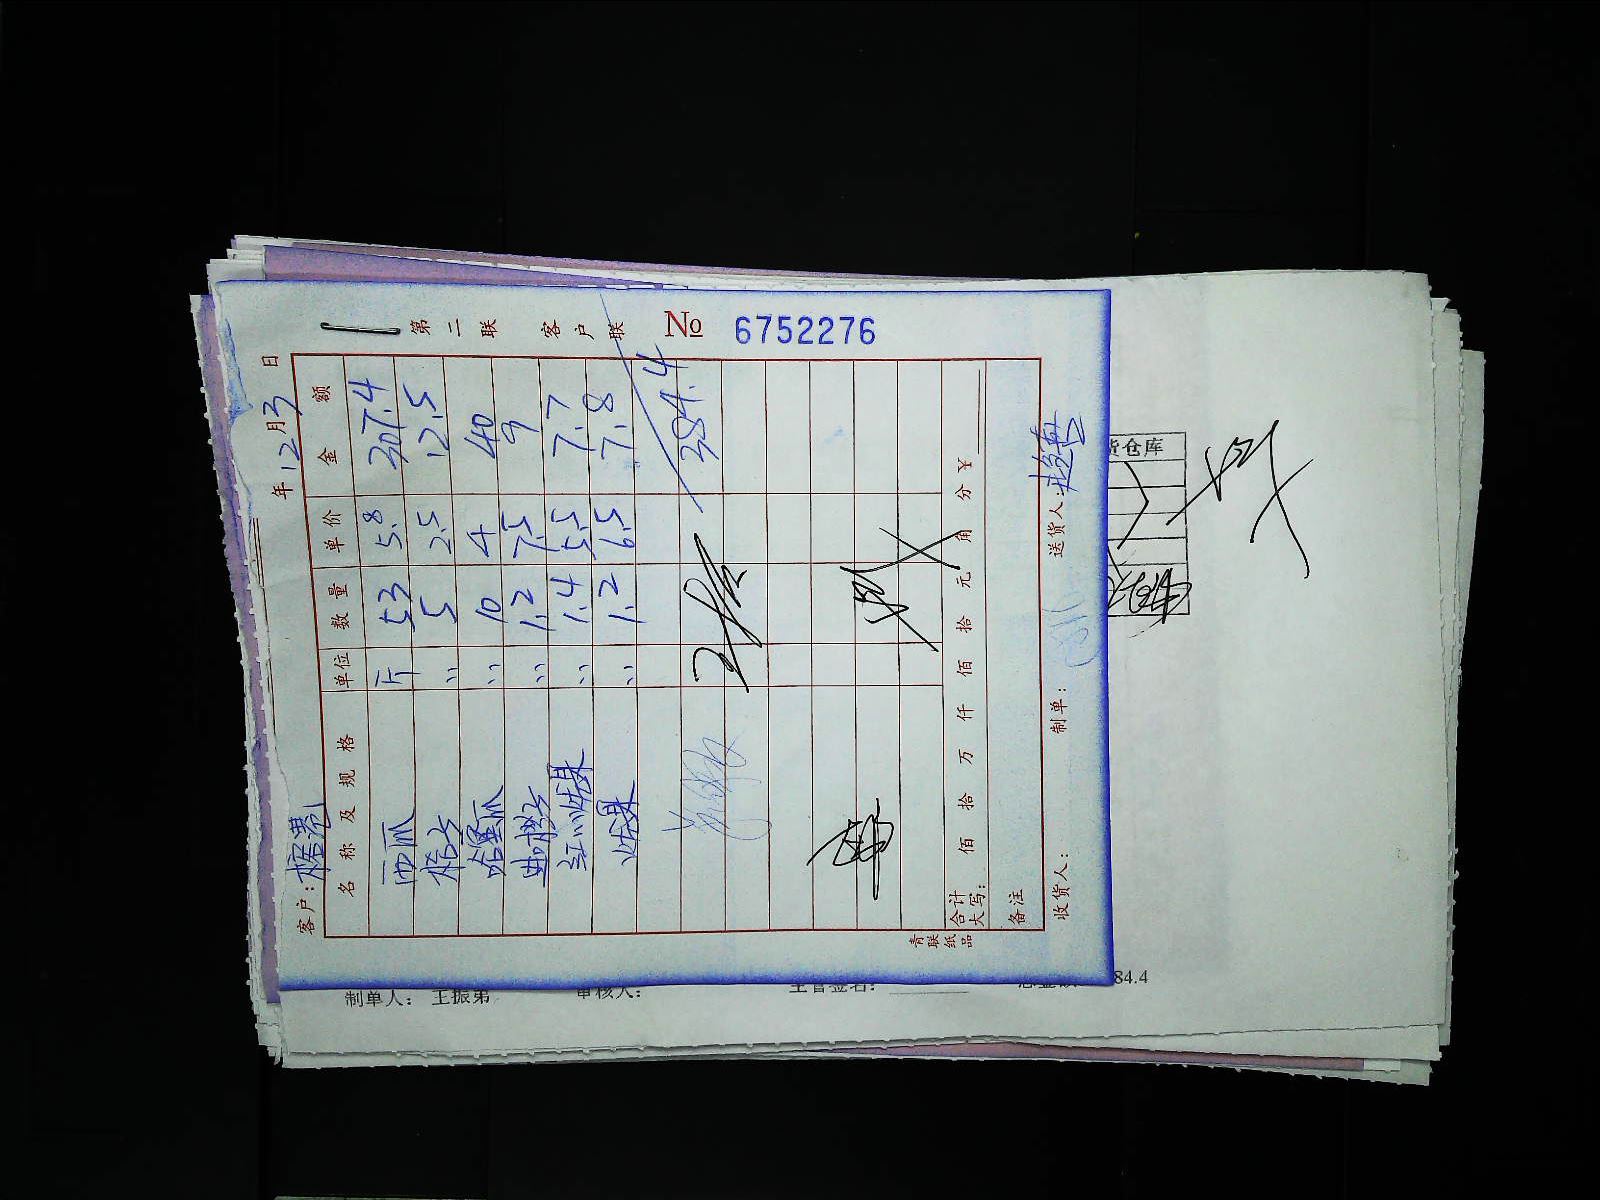 第二联 客户联 № 6752276
年12月3日
客户:
名称及规格 单位 数量 单价 金额
西瓜 斤 53 5.8 307.4
桔子 〃 5 2.5 12.5
哈蜜瓜 〃 10 4 40
〃 1.2 7.5 9
红小 〃 1.4 5.5 7.7
〃 1.2 6.5 7.8
384.4
合计大写: 佰 拾 万 仟 佰 拾 元 角 分 ¥
备注
收货人: 制单: 送货人:
青联纸品
货仓库
制单人: 王振弟 审核人: 主管签名: 84.4